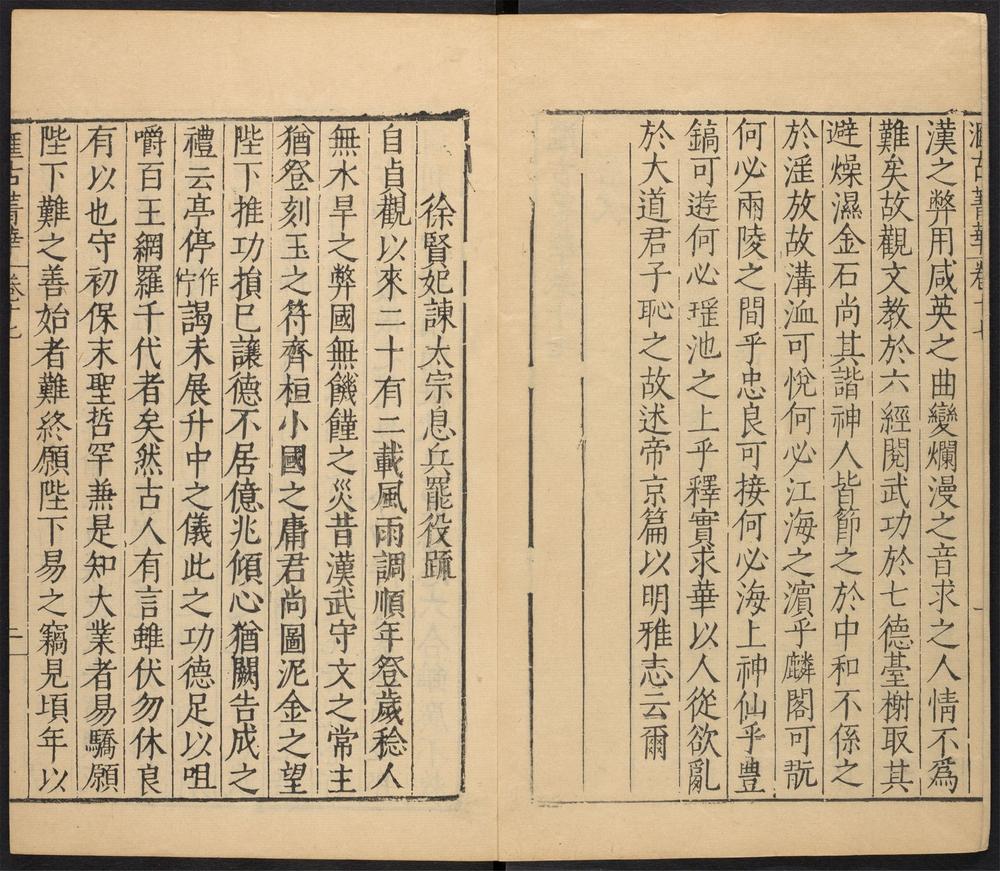 漢之弊用咸英之曲變爛漫之音求之人情不爲
難矣故觀文教於六經閱武功於七德臺榭取其
避燥濕金石尚其諧神人皆節之於中和不係之
於滛放故溝洫可悅何必江海之濵乎麟閣可翫
何必兩陵之間乎忠良可接何必海上神仙乎豊
鎬可遊何必瑶池之上乎釋實求華以人從欲亂
於大道君子恥之故述帝京篇以明雅志云爾
徐賢妃諫太宗息兵罷役䟽
自貞觀以來二十有二載風雨調順年登歲稔人
無水旱之弊國無饑饉之災昔漢武守文之常主
猶登刻玉之符齊桓小國之庸君尚圖泥金之望
陛下推功損巳讓德不居億兆傾心猶闕告成之
禮云亭停作佇謁未展升中之儀此之功德足以咀
嚼百王網羅千代者矣然古人有言雖伏勿休良
有以也守初保末聖哲罕兼是知大業者易驕願
陛下難之善始者難終願陛下易之竊見頃年以